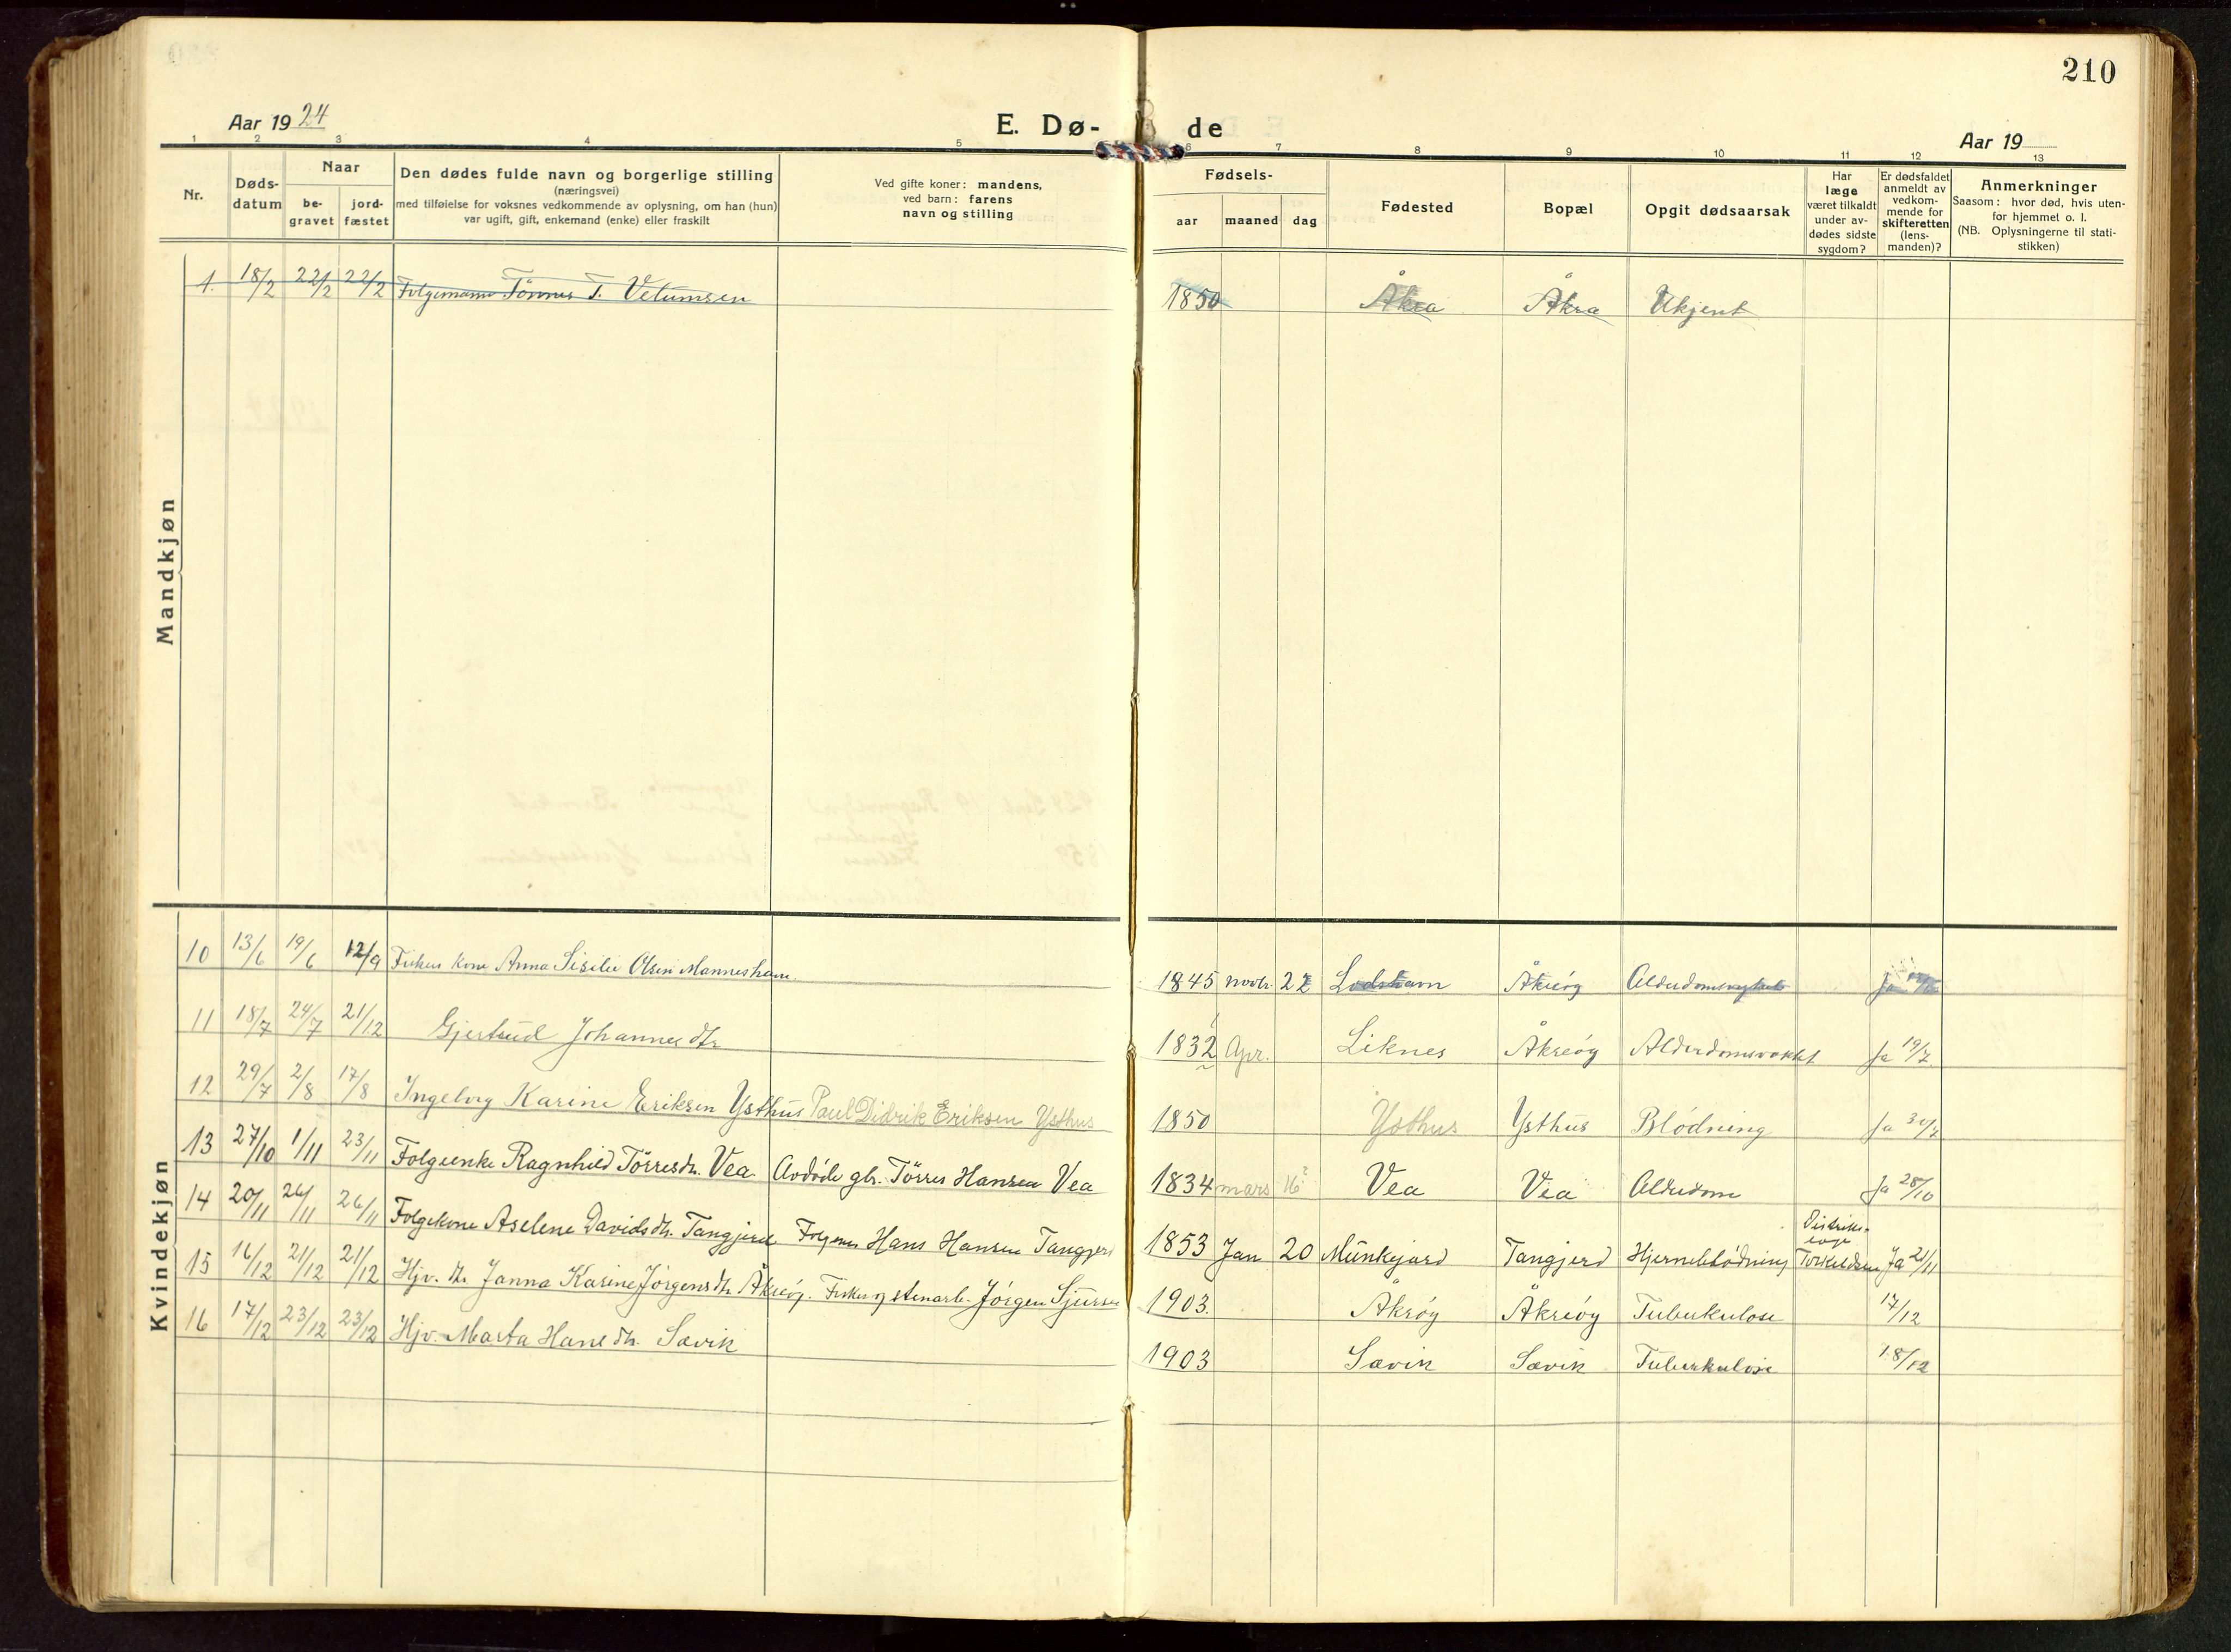 210
Aar 1924
E. Dø-
de
Aar 19
1 2 3 4 5 6 7 8 9 10 11 12 13
Nr.
Døds-
datum
Naar
be-
gravet
jord-
fæstet
Den dødes fulde navn og borgerlige stilling
(næringsvei)
med tilføielse for voksnes vedkommende av oplysning, om han (hun)
var ugift, gift, enkemand (enke) eller fraskilt
Ved gifte koner: mandens,
ved barn: farens
navn og stilling
Fødsels-
aar maaned dag
Fødested
Bopæl
Opgit dødsaarsak
Har
læge
været tilkaldt
under av-
dødes sidste
sygdom?
Er dødsfaldet
anmeldt av
vedkom-
mende for
skifteretten
(lens-
manden)?
Anmerkninger
Saasom: hvor død, hvis uten-
for hjemmet o. l.
(NB. Oplysningerne til stati-
stikken)
Mandkjøn
1. 18/2 22/2 22/2 Folgemann Tönnes T. Vetumsen 1850 Åkra Åkra Ukjent
Kvindekjøn
10 13/6 19/6 12/9 Fiskers kone Anna Sisilie Olsen Manneshavn 1845 novbr. 22 Åkreög Ja
11 18/7 24/7 21/12 Gjertrud Johannesdtr 1832 Apr. Liknes Åkreög Alderdomsvakkt Ja 19/7
12 29/7 2/8 17/8 Ingeborg Karine Eriksen Ysthus Paul Didrik Eriksen Ysthus 1850 Ysthus Ysthus Blödning Ja 30/7
13 27/10 1/11 23/11 Folgeenke Ragnhild Törresdtr. Vea Avdöde gbr. Törres Hansen Vea 1834 mars 16? Vea Vea Alderdom Ja 28/10
14 20/11 26/11 26/11 Folgekone Aselene Davidsdtr. Tangjerd Hans Hansen Tangjerd 1853 Jan 20 Munkejord Tangjerd Hjerneblödning Distrikts-
læge
Torkeldsen Ja 21/11
15 16/12 21/12 21/12 Hjv. dtr. Janna Karine Jörgensdtr. Åkreög. Fisker og stenarb. Jörgen Sjursen 1903. Åkrög Åkreög Tuberkulose 17/12
16 17/12 23/12 23/12 Hjv. Marta Hansdtr. Sævik 1903 Sævik Sævik Tuberkulose 18/12